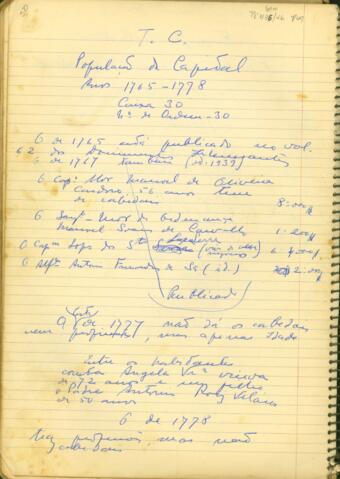 T. C.
População da Capital
Anos 1765-1778
Caixa 30
Nº de Ordem-30
O de 1765 está publicado no vol.
62 dos Documentos Interessantes
O de 1767 também (id: 1939)
O Capm Mor Manuel de Oliveira
Cardoso, 56 anos tem
de cabedais 8:000$
O Sargto-Mor da Ordenança
Manuel de Carvalho 1:200$
O Capm Lopo dos Stos
O Alfs Antonio Francisco de Sá (id.) 2:000$
Publicado
A lista de 1777 não dá os cabedais
nem profissões, mas apenas idade
Entre os habitantes
consta Angela Vra viuva
de 72 anos e seu filho
o Padre Antonio
de 50 anos
O de 1778
traz profissões mas não
cabedais